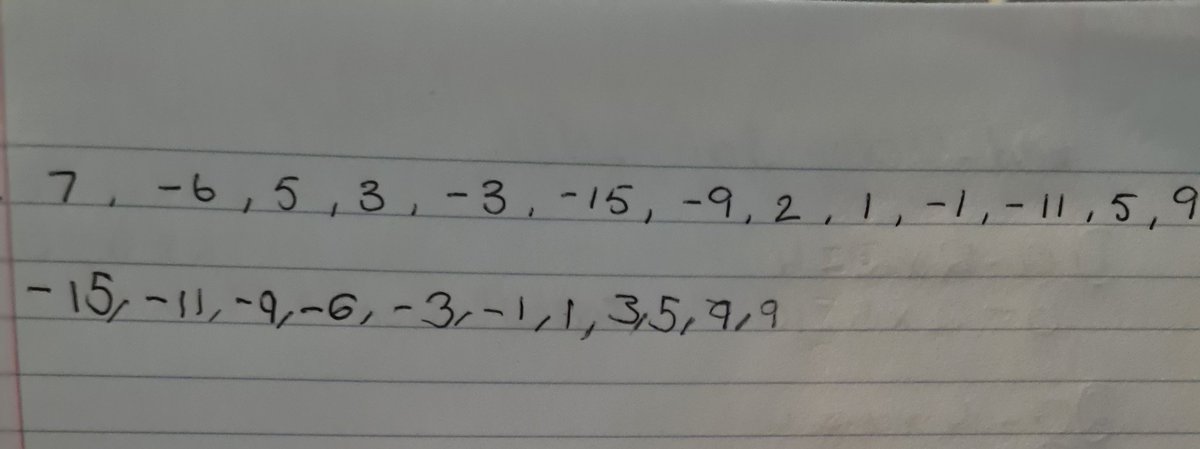 7, -6, 5, 3, -3, -15, -9, 2, 1, -1, -11, 5, 9
-15, -11, -9, -6, -3, -1, 1, 3, 5, 9, 9